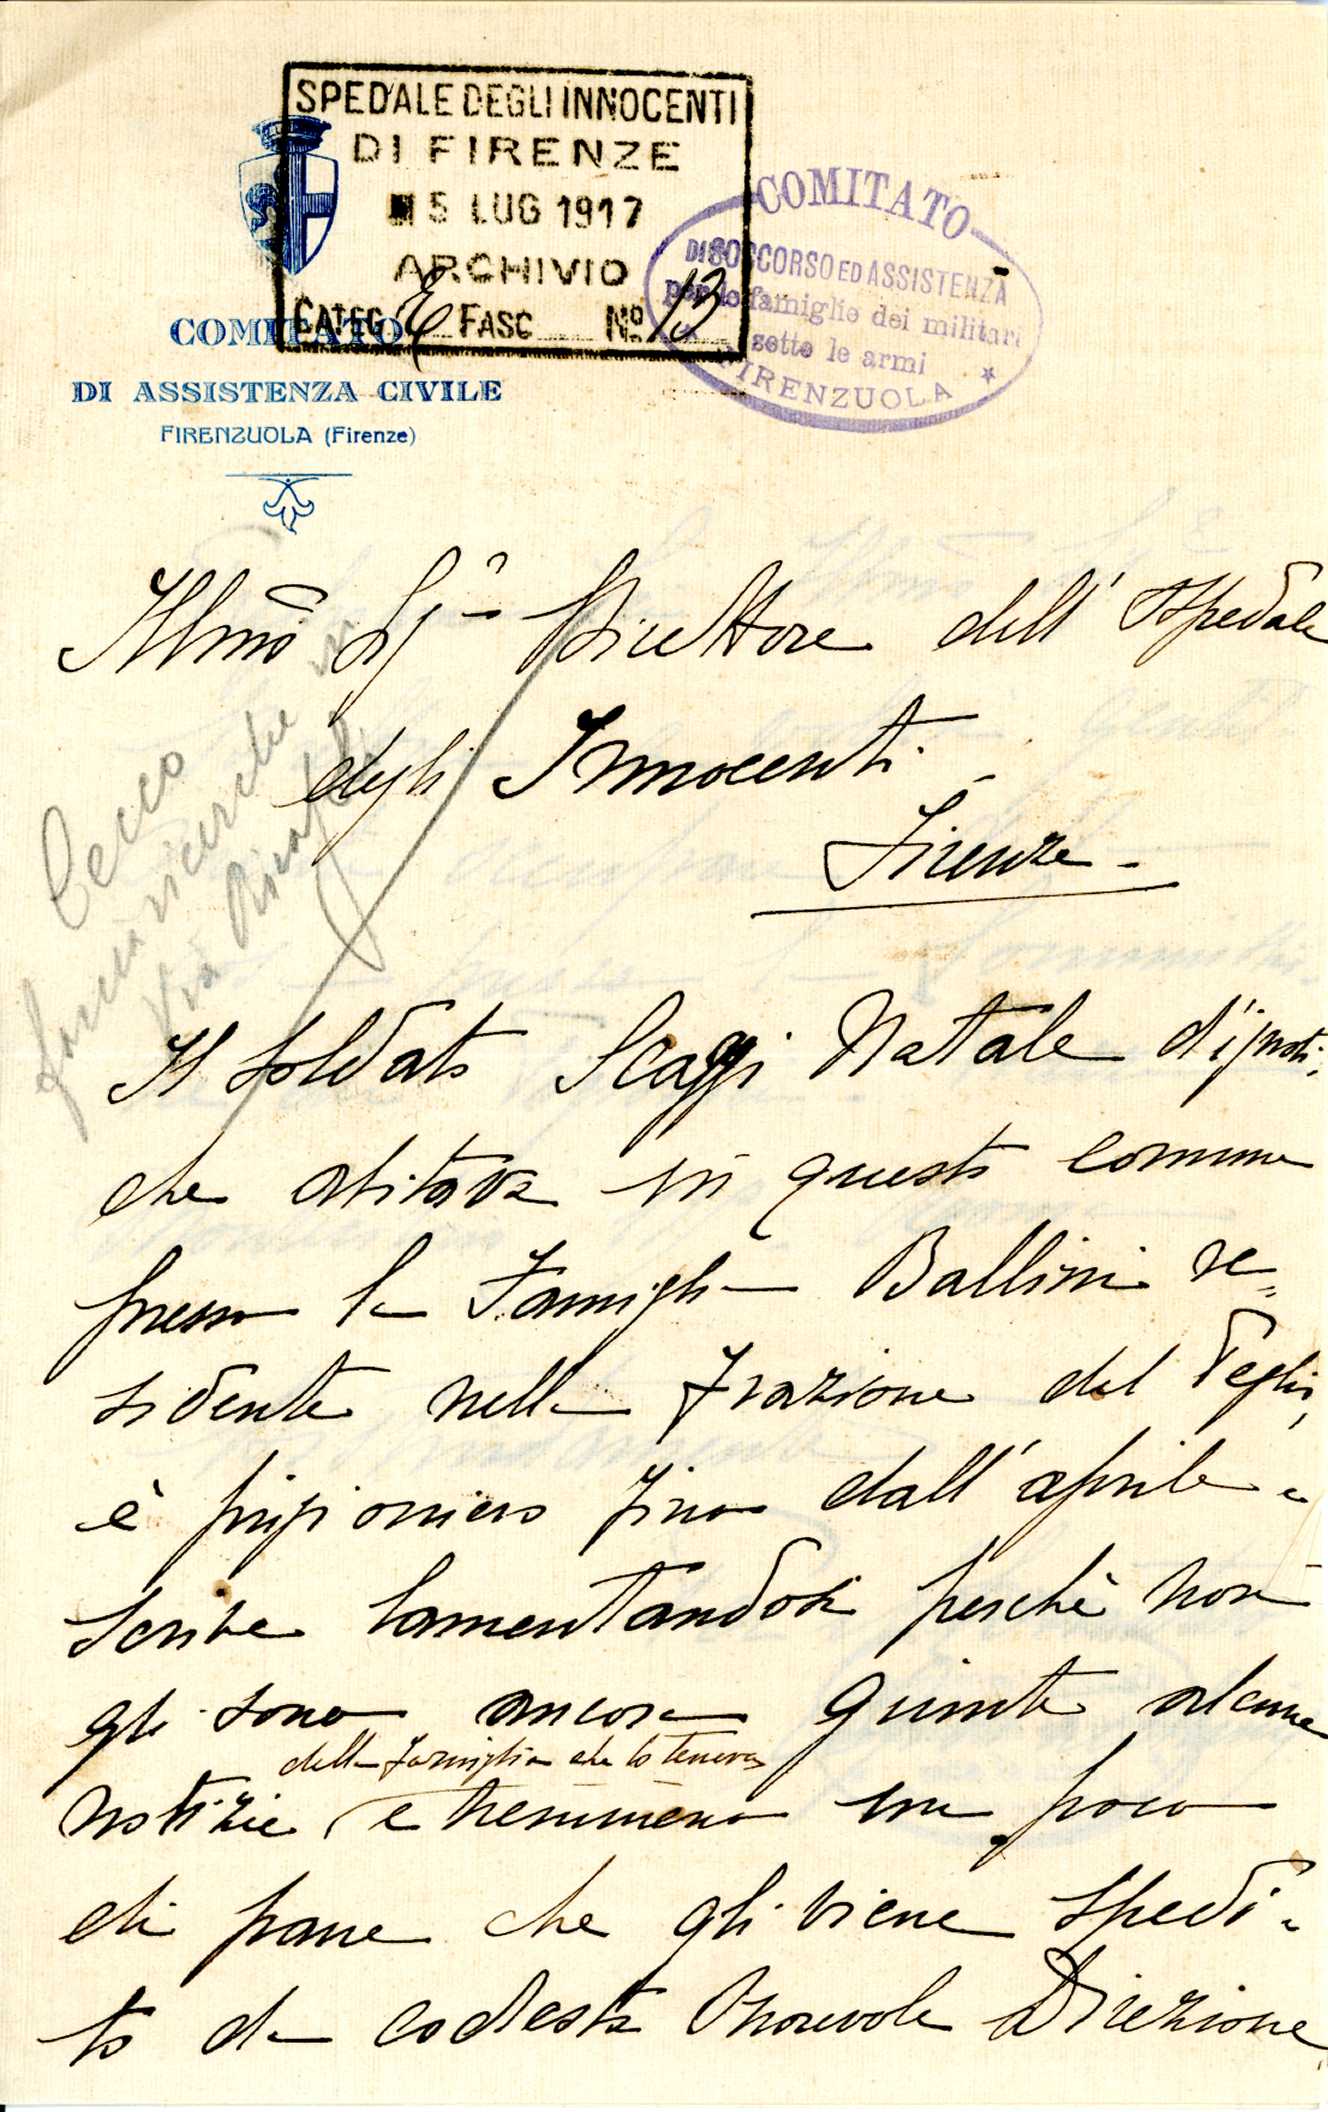 SPEDALE DEGLI INNOCENTI
DI FIRENZE
5 LUG 1917
ARCHIVIO
CATEG. E FASC Nº 13
COMITATO
DI SOCCORSO ED ASSISTENZA
per le famiglie dei militari
sotto le armi
FIRENZUOLA
COMITATO
DI ASSISTENZA CIVILE
FIRENZUOLA (Firenze)
Illmo Sigr Direttore dell' Ospedale
degli Innocenti
Firenze -
Cecco
faccia ricerche in
Via Ricasoli
Il soldato Scaggi Natale d'ignoti,
che abitava in questo comune
presso la Famiglia Ballini re„
sidente nella Frazione del Peglio,
è prigioniero fino dall'aprile e
scrive lamentandosi perchè non
gli sono ancora giunte alcune
della famiglia che lo teneva
notizie e nemmeno un poco
di pane che gli viene spedi„
to da codesta Onorevole Direzione,